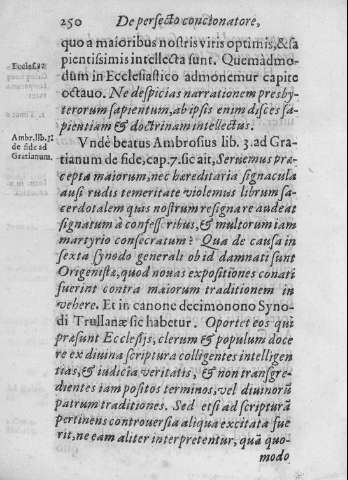 250 De perfecto concionatore,
quo a maioribus nostris viris optimis, & sa
pientissimis intellecta sunt. Quemàdmo-
Eccles. 8.
dum in Ecclesiastico admonemur capite
octauo. Ne despicias narrationem presby-
terorum sapientum, ab ipsis enim disces sa-
pientiam & doctrinam intellectus.
Ambr. lib. 3.
de fide ad
Gratianum.
Vndè beatus Ambrosius lib. 3. ad Gra-
tianum de fide, cap. 7. sic ait, Seruemus præ-
cepta maiorum, nec hereditaria signacula
ausi rudis temeritate violemus librum sa-
cerdotalem quis nostrum resignare audeat
signatum à confessoribus, & multorum iam
martyrio consecratum? Qua de causa in
sexta synodo generali ob id damnati sunt
Origenistæ, quod nouas expositiones conati
fuerint contra maiorum traditionem in
vehere. Et in canone decimonono Syno-
di Trullanæ sic habetur. Oportet eos qui
præsunt Ecclesijs, clerum & populum doce
re ex diuina scriptura colligentes intelligen
tias, & iudicia veritatis, & non transgre-
dientes iam positos terminos, vel diuinorũ
patrum traditiones. Sed etsi ad scripturã
pertinens controuersia aliqua excitata fue
rit, ne eam aliter interpretentur, quã quo-
modo